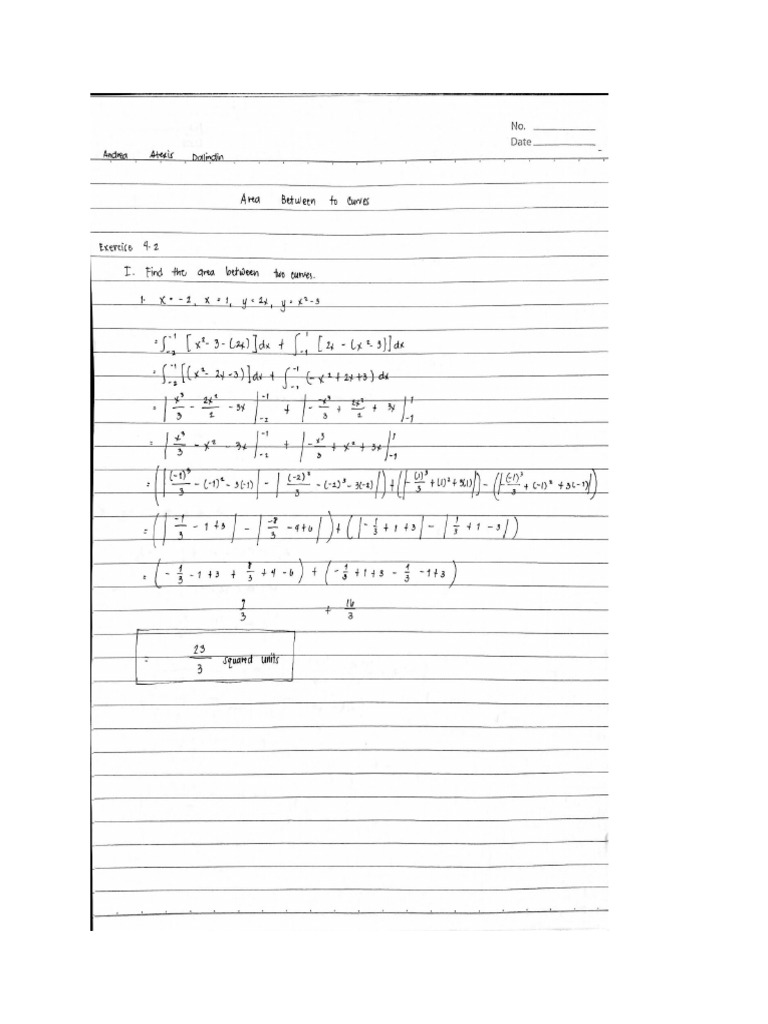 No. ________
Date ________
Andrea Alexis Dalindin
Area Between to Curves
Exercise 4.2
I. Find the area between two curves.
1. x = -2, x = 1, y = 2x, y = x² - 3
= ∫₋₂⁻¹ [x² - 3 - (2x)] dx + ∫₋₁¹ [2x - (x² - 3)] dx
= ∫₋₂⁻¹ [(x² - 2x - 3)] dx + ∫₋₁⁻¹ (-x² + 2x + 3) dx
= | x³/3 - 2x²/2 - 3x |₋₂⁻¹ + | -x³/3 + 2x²/2 + 3x |₋₁¹
= | x³/3 - x² - 3x |₋₂⁻¹ + | -x³/3 + x² + 3x |₋₁¹
= (| (-1)³/3 - (-1)² - 3(-1) | - | (-2)²/3 - (-2)³ - 3(-2) |) + (| -(1)³/3 + (1)² + 3(1) |) - (| -(-1)³/3 + (-1)² + 3(-1) |)
= (| -1/3 - 1 + 3 | - | -8/3 - 4 + 6 |) + (| -1/3 + 1 + 3 | - | 1/3 + 1 - 3 |)
= (-1/3 - 1 + 3 + 8/3 + 4 - 6) + (-1/3 + 1 + 3 - 1/3 - 1 + 3)
7/3 + 16/3
= 23/3 squared units